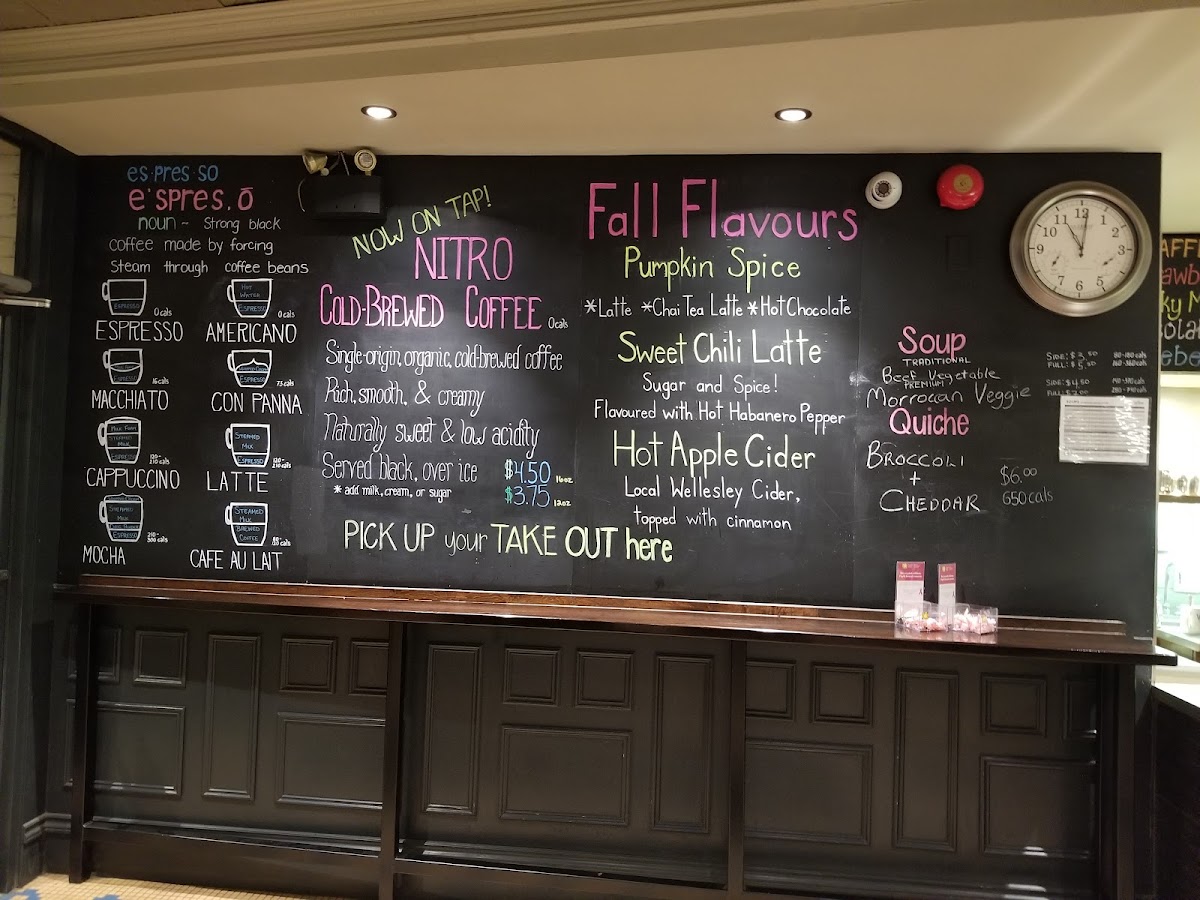 es·pres·so
e'spres.ō
noun~ Strong black
coffee made by forcing
Steam through coffee beans
ESPRESSO
0 cals
ESPRESSO
HOT
WATER
ESPRESSO
0 cals
AMERICANO
ESPRESSO
MACCHIATO
ESPRESSO
73 cals
CON PANNA
MILK FOAM
STEAMED
MILK
ESPRESSO
CAPPUCCINO
STEAMED
MILK
ESPRESSO
LATTE
STEAMED
MILK
ESPRESSO
MOCHA
STEAMED
MILK
BREWED
COFFEE
CAFE AU LAIT
NOW ON TAP!
NITRO
COLD-BREWED COFFEE 0 cals
Single-origin, organic, cold-brewed coffee
Rich, smooth, & creamy
Naturally sweet & low acidity
Served black, over ice $4.50 16oz
* add milk, cream, or sugar $3.75 12oz
PICK UP your TAKE OUT here
Fall Flavours
Pumpkin Spice
*Latte *Chai Tea Latte *Hot Chocolate
Sweet Chili Latte
Sugar and Spice!
Flavoured with Hot Habanero Pepper
Hot Apple Cider
Local Wellesley Cider,
topped with cinnamon
12
1
2
3
4
5
6
7
8
9
10
11
Soup
TRADITIONAL
Beef Vegetable
PREMIUM
Morrocan Veggie
SIDE: $3.50
FULL: $5.50
SIDE: $4.50
Quiche
BROCCOLI
+
CHEDDAR
$6.00
650 cals